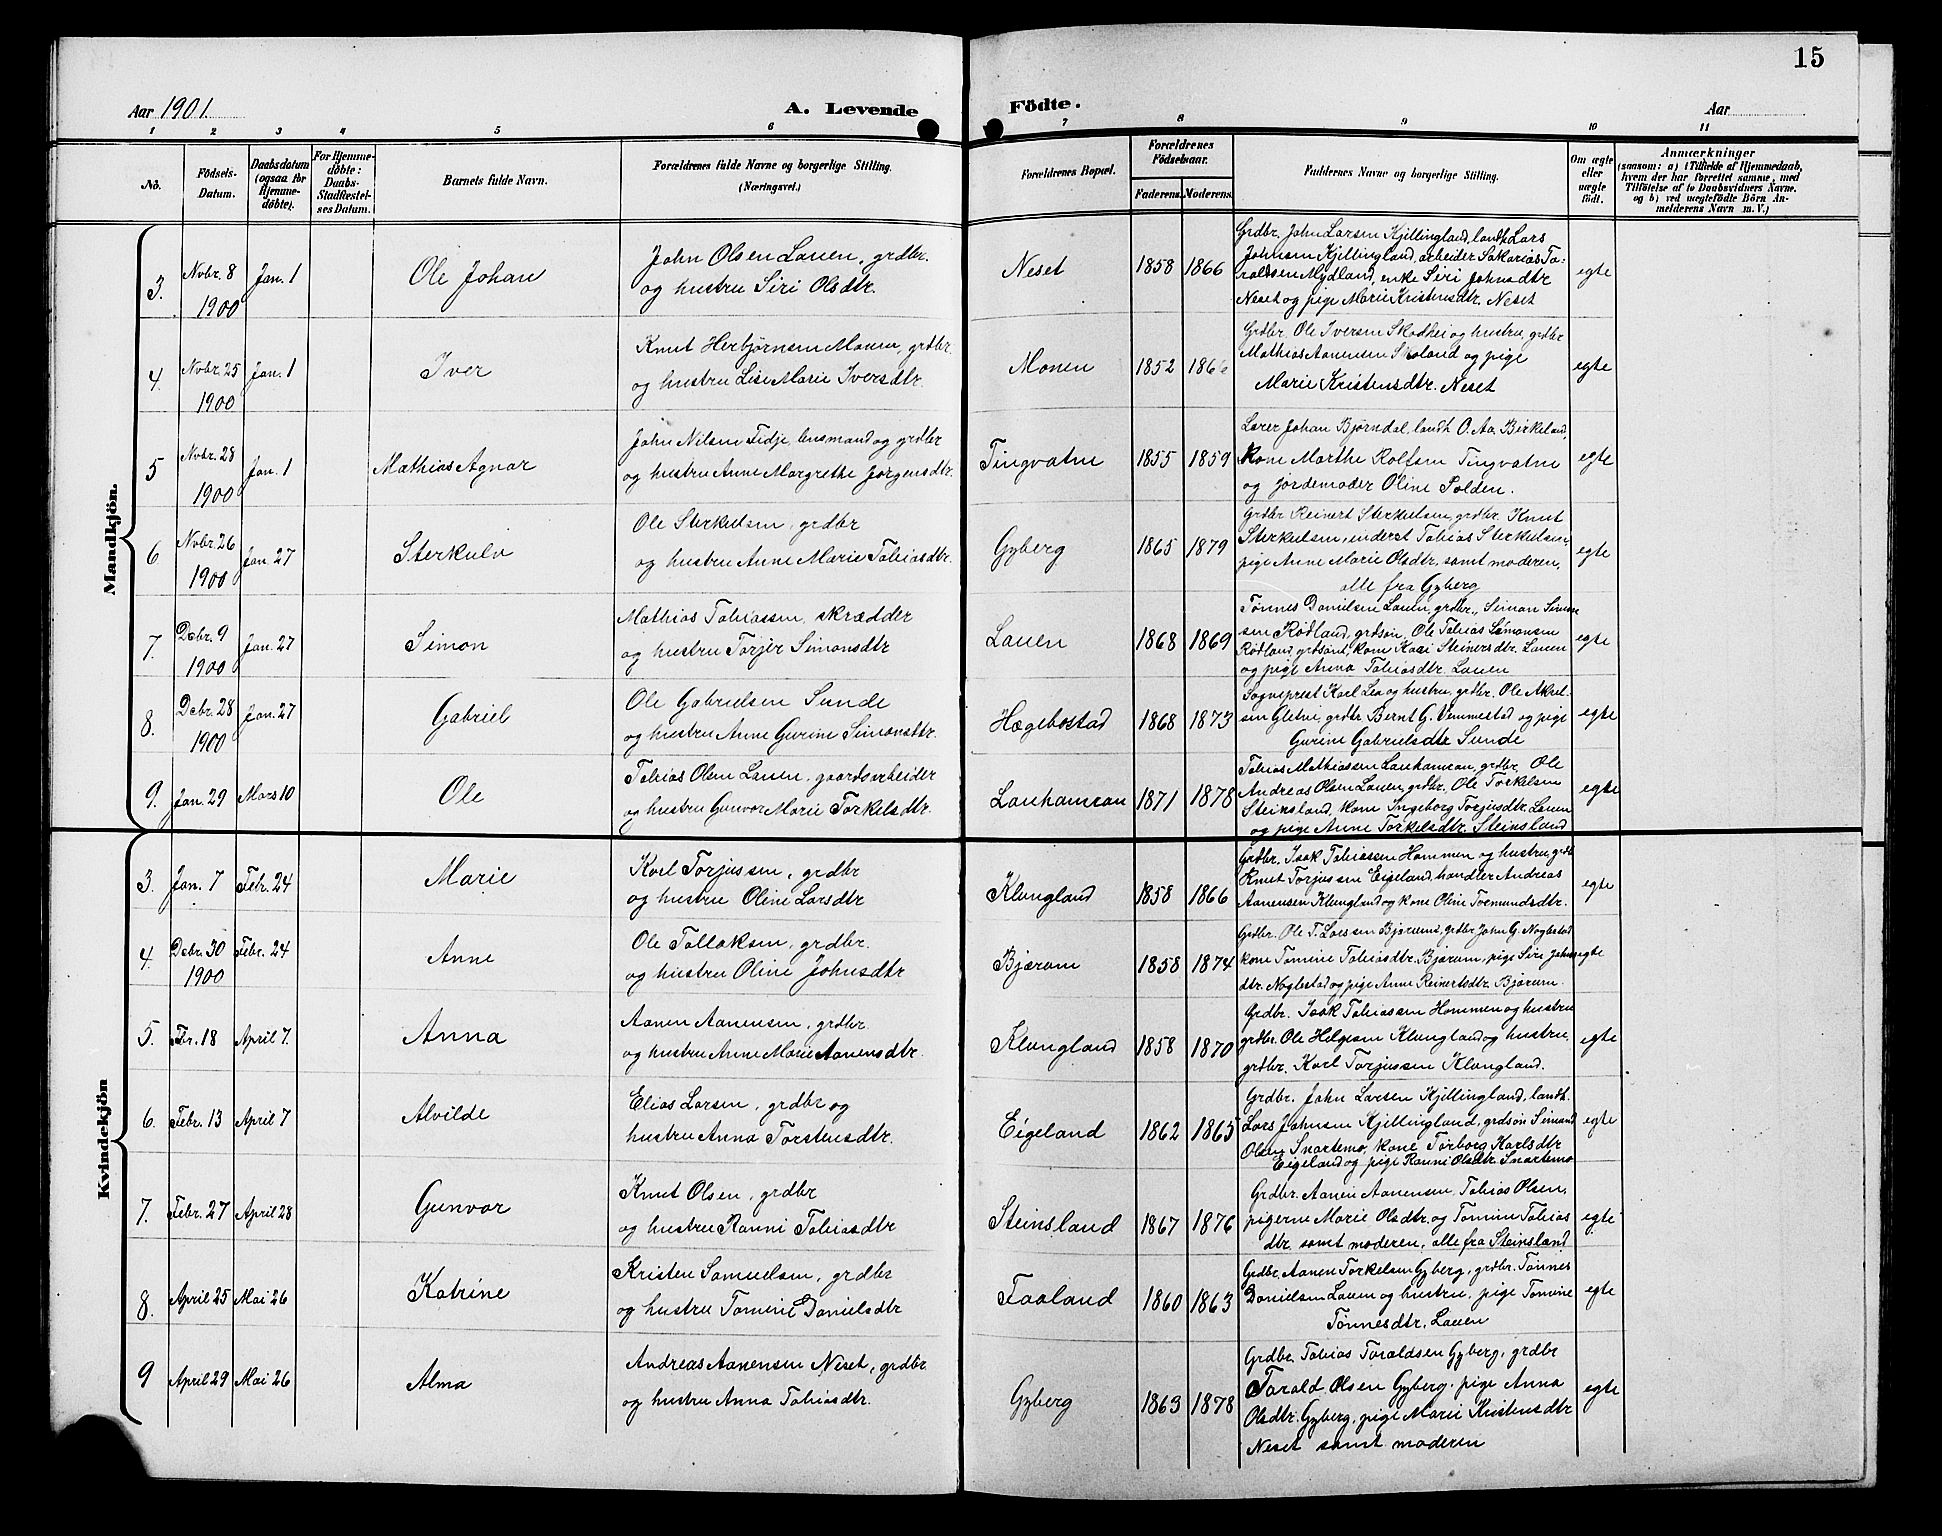 15
Aar 1901.
A. Levende Födte.
Aar
1 2 3 4 5 6 7 8 9 10 11
No.
Födsels-
Datum.
Daabsdatum
(ogsaa for
Hjemme-
döbte).
For Hjemme-
döbte:
Daabs-
Stadfæstel-
ses Datum.
Barnets fulde Navn.
Forældrenes fulde Navne og borgerlige Stilling.
(Næringsvei.)
Forældrenes Bopæl.
Forældrenes
Födselsaar.
Faderens. Moderens.
Faddernes Navne og borgerlige Stilling.
Om ægte
eller
uægte
födt.
Anmærkninger
(saasom: a) i Tilfælde af Hjemmedaab,
hvem der har forrettet samme, med
Tilföielse af to Daabsvidners Navne.
og b) ved uægtefödte Börn An-
melderens Navn m. V.)
Mandkjön.
3. Novbr. 8 1900 Jan. 1 Ole Johan
John Olsen Lauen, grdbr.
og hustru Siri Olsdtr.
Neset 1858 1866
Grdbr. John Larsen Kjillingland, landh. Lars
Johnsen Kjillingland, arbeider Sakarias Ta-
raldsen Mydland, enke Siri Johnsdtr
Neset og pige Marie Kristensdtr. Neset
egte
4. Novbr. 25 1900 Jan. 1 Iver
Knut Herbjörnsen Monen, grdbr.
og hustru Lise Marie Iversdtr.
Monen 1852 1866
Grdbr. Ole Iversen Skodhei og hustru, grdbr
Mathias Aanensen Skoland og pige
Marie Kristensdtr. Neset
egte
5 Novbr. 28 1900 Jan. 1 Mathias Agnar
John Nilsen Fidje, lensmand og grdbr
og hustru Anne Margrethe Jörgensdtr.
Tingvatne 1855 1859
Lærer Johan Björndal, landh. O. Aa. Birkeland,
kone Marthe Rolfsen Tingvatne
og jordemoder Oline Solden.
egte
6 Novbr. 26 1900 Jan. 27 Sterkulv
Ole Sterkulsen, grdbr
og hustru Anne Marie Tobiasdtr.
Gyberg 1865 1879
Grdbr Reinert Sterkulsen, grdbr. Knut
Sterkulsen, inderst Tobias Sterkulsen,
pige Anne Marie Olsdtr, samt moderen,
alle fra Gyberg
egte
7. Debr. 9 1900 Jan. 27 Simon
Mathias Tobiassen, skrædder
og hustru Torjer Simonsdtr
Lauen 1868 1869
Tönnes Danielsen Lauen, grdbr., Simon Simon
sen Rödland, grdsön, Ole Tobias Simonsen
Rödland, grdsön, kone Kari Steinersdtr. Lauen
og pige Anna Tobiasdtr. Lauen
egte
8. Debr. 28 1900 Jan. 27 Gabriel
Ole Gabrielsen Sunde
og hustru Anne Gurine Simonsdtr.
Hægebostad 1868 1873
Sogneprest Karl Lea og hustru, grdbr. Ole Aksel-
sen Gletne, grdbr Bernt G. Vemmestad og pige
Gurine Gabrielsdtr Sunde
egte
9. Jan. 29 Mars 10 Ole
Tobias Olsen Lauen, gaardsarbeider
og hustru Gunvor Marie Torkelsdtr.
Lauhamran 1871 1878
Tobias Mathiassen Lauhamran, grdbr. Ole
Andreas Olsen Lauen, grdbr. Ole Torkelsen
Steinsland, kone Ingeborg Torjusdtr. Lauen
og pige Anne Torkelsdtr. Steinsland
egte
Kvindekjön
3. Jan. 7 Febr. 24 Marie
Karl Torjussen, grdbr
og hustru Oline Larsdtr
Klungland 1858 1866
Grdbr. Isak Tobiassen Hommen og hustru, grdb
Knut Torjussen Eigeland, handler Andreas
Aanensen Klungland og kone Oline Tormundsdtr.
egte
4. Debr. 30 1900 Febr. 24 Anne
Ole Tollaksen, grdbr.
og hustru Oline Johnsdtr
Bjærum 1858 1874
Grdbr. Ole T. Larssen Bjærum, grdbr John G. Noglestad
kone Tomine Tobiasdtr. Bjærum, pige Siri Johns
dtr. Noglestad og pige Anne Reinertsdtr. Bjærum.
egte
5. Febr. 18 April 7. Anna
Aanen Aanensen, grdbr.
og hustru Anne Marie Aanensdtr.
Klungland 1858 1870
Grdbr. Isak Tobiassen Hommen og hustru
grdbr. Ole Helgesen Klungland og hustru,
grdbr. Karl Torjussen Klungland.
egte
6. Febr. 13 April 7 Alvilde
Elias Larsen, grdbr og
hustru Anna Torstensdtr.
Eigeland 1862 1865
Grdbr. John Larsen Kjillingland, landh.
Lars Johnsen Kjillingland, grdsön Simand
Olsen Snartemo, kone Torborg Karlsdtr
Eigeland og pige Ranni Olsdtr. Snartemo
egte
7. Febr. 27 April 28 Gunvor
Knut Olsen, grdbr
og hustru Ranni Tobiasdtr
Steinsland 1867 1876
Grdbr. Aanen Aanensen, Tobias Olsen,
pigerne Marie Olsdtr, og Tomine Tobias
dtr. samt moderen, alle fra Steinsland
egte
8. April 25 Mai 26 Katrine
Kristen Samuelsen, grdbr
og hustru Tomine Danielsdtr
Faaland 1860 1863
Grdbr. Aanen Torkelsen Gyberg, grdbr. Tönnes
Danielsen Lauen og hustru, pige Tomine
Tönnesdtr. Lauen
egte
9 April 29 Mai 26 Alma
Andreas Aanensen Neset, grdbr
og hustru Anna Tobiasdtr.
Gyberg 1863 1878
Grdbr. Tobias Taraldsen Gyberg, grdbr
Tarald Olsen Gyberg, pige Anna
Olsdtr. Gyberg, pige Marie Kristensdtr
Neset samt moderen
egte